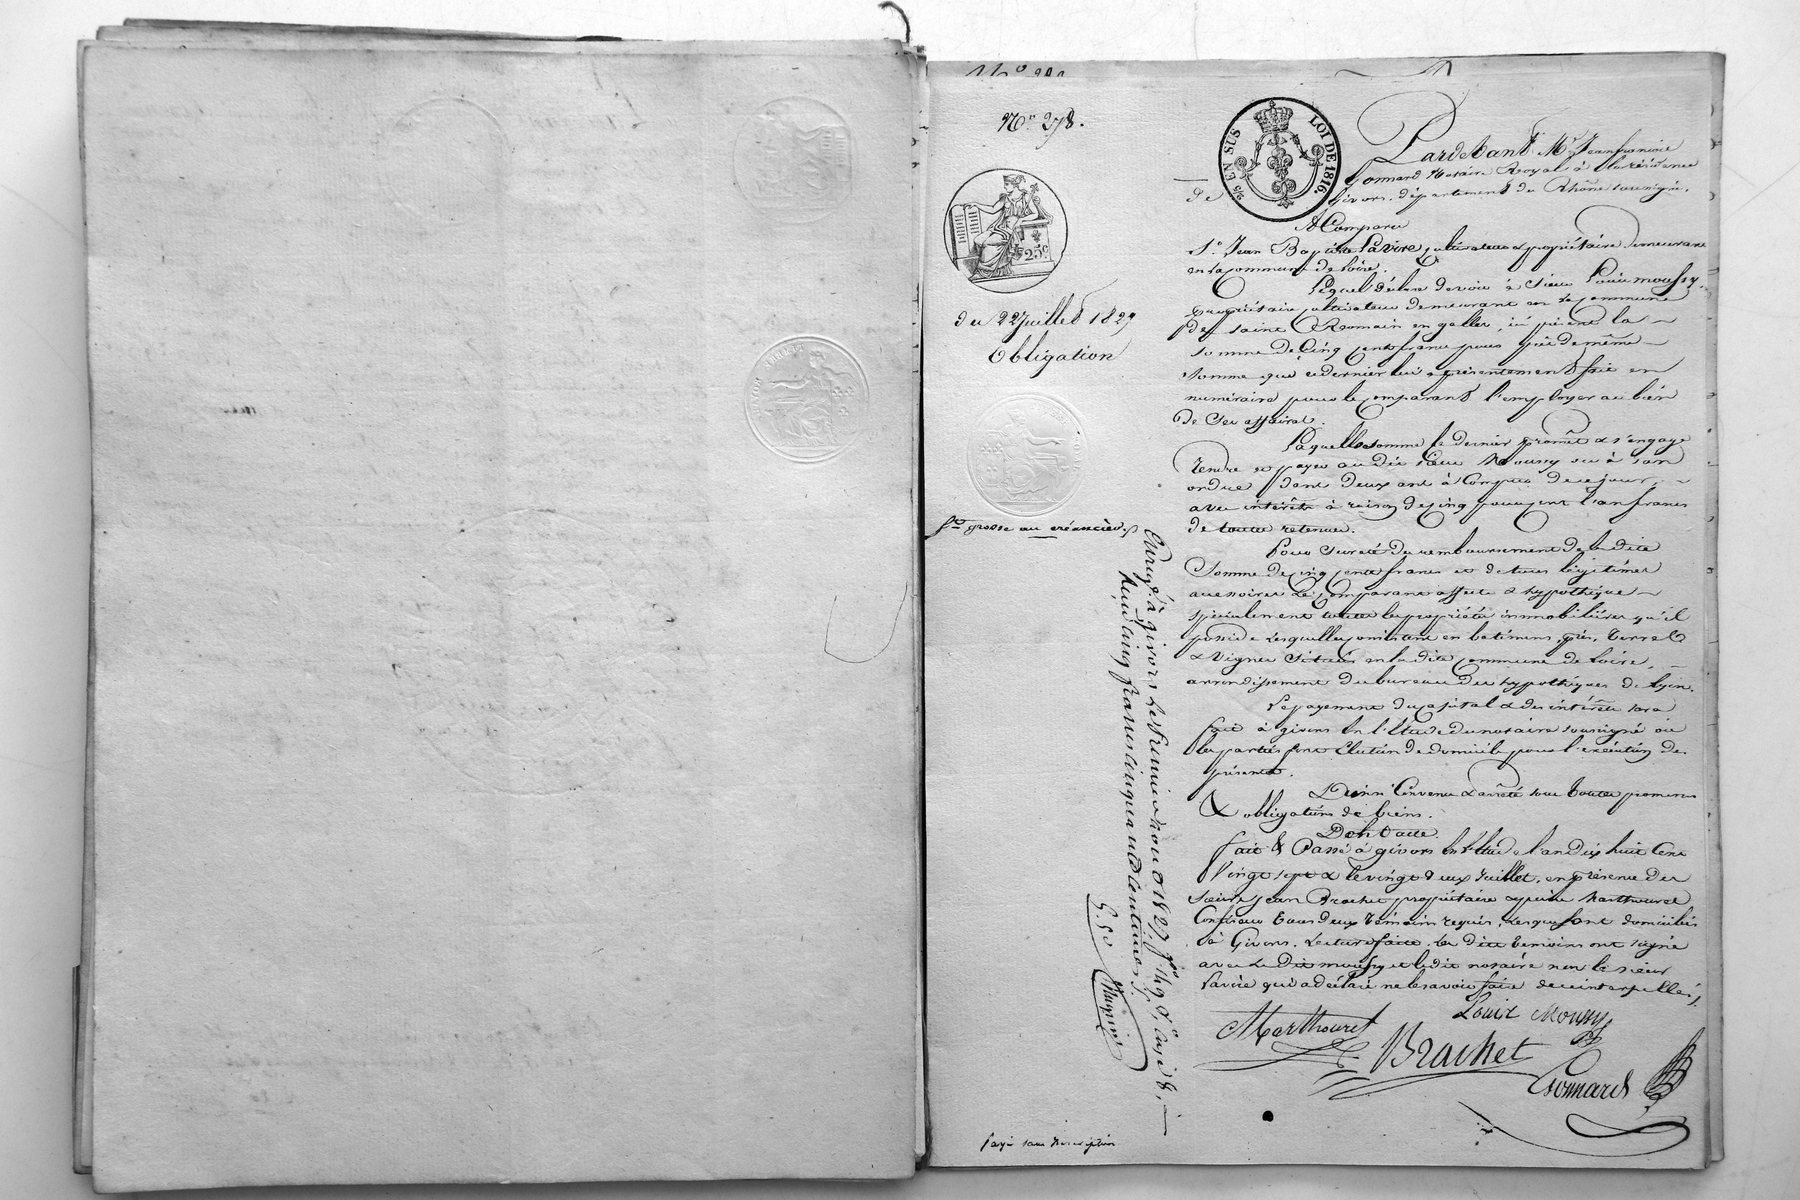 N° 278.
EN SUS
LOI DE 1816.
25c
du 22 Juillet 1827
Obligation
grosse au créancier
Pardevant Me Jean françois
Gonnard Notaire Royal à la résidence
de Givors, département du Rhône soussigné.
A Comparu
Sr. Jean Baptiste Lavire cultivateur & propriétaire demeurant
en la commune de loire.
Lequel déclare devoir à Sieur Louis moussy,
propriétaire cultivateur demeurant en la commune
de saint Romain en galler, ici présent la
somme de Cinq cents francs pour prêt de même
somme que ce dernier lui a présentement fait en
numéraire pour le comparant l'employer au bien
de Ses affaires.
Laquelle somme le dernier promet & s'engage
rendre et payer au dit sieur Moussy ou à son
ordre dans deux ans à Compter de ce jour,
avec intérêts à raison de cinq pour cent l'an francs
de toute retenue.
Pour sureté du remboursement de la dite
Somme de cinq cents francs et de tous légitimes
accessoires Le comparant affecte & hypothèque
spécialement toutes les propriétés immobilières qu'il
possède Lesquelles consistent en batimens, prés, terres
& vignes Situés en la dite Commune de loire,
arrondissement du bureau des hypothèques de lyon.
Le payement du capital & des intérêts sera
fait à givors En l'Etude du notaire soussigné où
les parties font Election de domicile pour l'exécution des
présentes.
Ainsi Convenu & arrêté sous toutes promesses
& obligations de biens.
Dont acte.
fait & Passé à givors En l'Etude l'an dix huit Cent
Vingt sept & le vingt deux Juillet, en présence des
sieurs jean Brachet propriétaire & pierre Marthouret
tous deux témoins requis, Lesquels sont domiciliés
à Givors. Lecture faite. Les dits témoins ont signé
avec Le Dit moussy et le dit notaire non le sieur
Lavire qui a déclaré ne le savoir faire de ce interpellés.
Louis Moussy
Marthouret
Brachet
Gonnard
Enregt. à givors le premier aout 1827, fo 149 Vo, case 8,
Reçu cinq francs cinquante centimes
5.50
payé sans Inscription